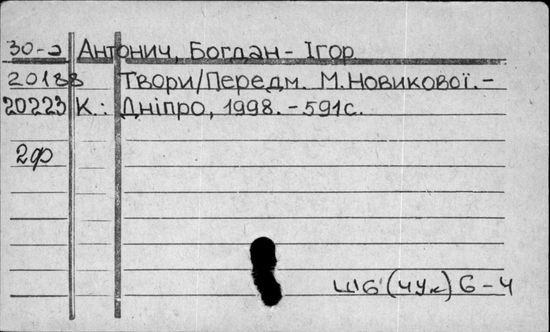 30-э Антонич, Богдан-Ігор
20188 Твори/Передм. М.Новикової.-
20223 К.: Дніпро, 1998.-591с.
2ф
Ш6(4Ук)6-4